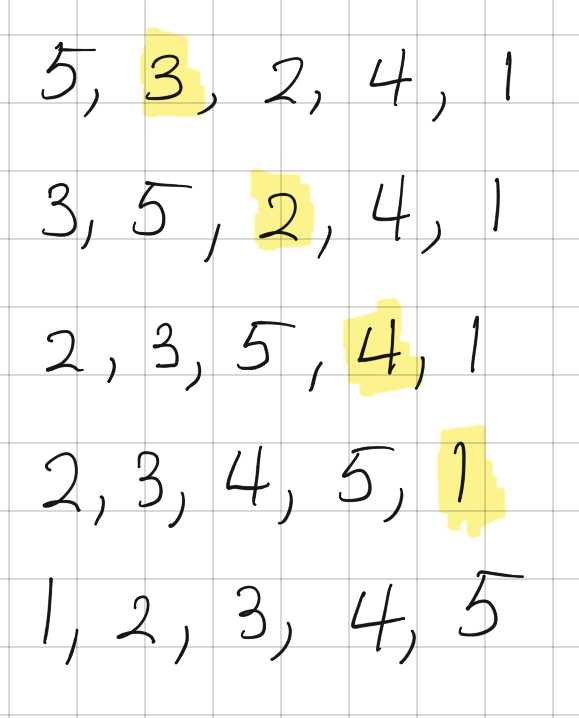 5, 3, 2, 4, 1
3, 5, 2, 4, 1
2, 3, 5, 4, 1
2, 3, 4, 5, 1
1, 2, 3, 4, 5